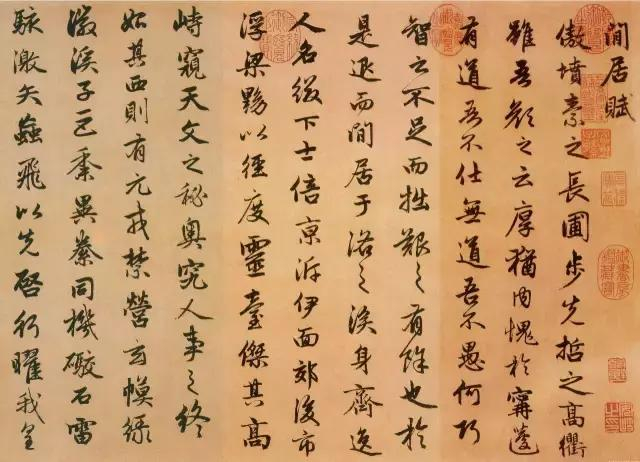 閒居賦
傲墳素之長圃步先哲之高衢
雖吾顏之云厚猶內愧於甯蘧
有道吾不仕無道吾不愚何巧
智之不足而拙艱之有餘也於
是退而閒居于洛之涘身齊逸
人名綴下士倍京泝伊面郊後市
浮梁黝以徑度靈臺傑其高
峙窺天文之秘奧究人事之終
始其西則有元戎禁營玄幙綠
徽溪子巨黍異絭同機礮石雷
駭激矢蟲飛以先啓行曜我皇